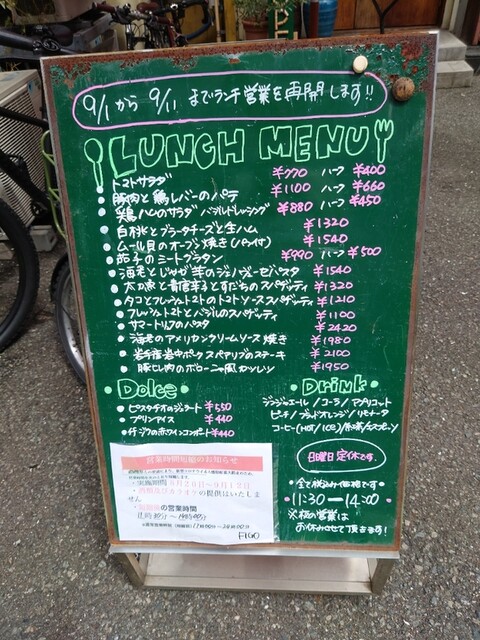 9/1 から 9/11 までランチ営業を再開します!!
LUNCH MENU
・トマトサラダ ¥770 ハーフ ¥400
・豚肉と鶏レバーのパテ ¥1100 ハーフ ¥660
・鶏ハムのサラダ バジルドレッシング ¥880 ハーフ ¥450
・白桃とブラータチーズと生ハム ¥1320
・ムール貝のオーブン焼き ¥1540
・茄子のミートグラタン ¥990 ハーフ ¥500
・海老とじゃが芋のジェノヴェーゼパスタ ¥1540
・太刀魚と青唐辛子とすだちのスパゲッティ ¥1320
・タコとフレッシュトマトのトマトソーススパゲッティ ¥1210
・フレッシュトマトとバジルのスパゲッティ ¥1100
・サマートリュフのパスタ ¥2420
・海老のアメリカンクリームソース焼き ¥1980
・岩手産岩中ポーク スペアリブのステーキ ¥2100
・豚ヒレ肉のボローニャ風カツレツ ¥1950
・Dolce・
・ピスタチオのジェラート ¥550
・プリンアイス ¥440
・イチジクの赤ワインコンポート ¥440
・Drink・
ジンジャエール/コーラ/アプリコット
ピーチ/ブラッドオレンジ/リモナータ
コーヒー(HOT/ICE)/紅茶/エスプレッソ
日曜日定休です。
・全て税込み価格です・
・11:30-14:00・
※夜の営業は
お休みさせて頂きます!
営業時間短縮のお知らせ
・実施期間 8月20日~9月12日
・酒類及びカラオケの提供はいたしません
の営業時間
FIGO